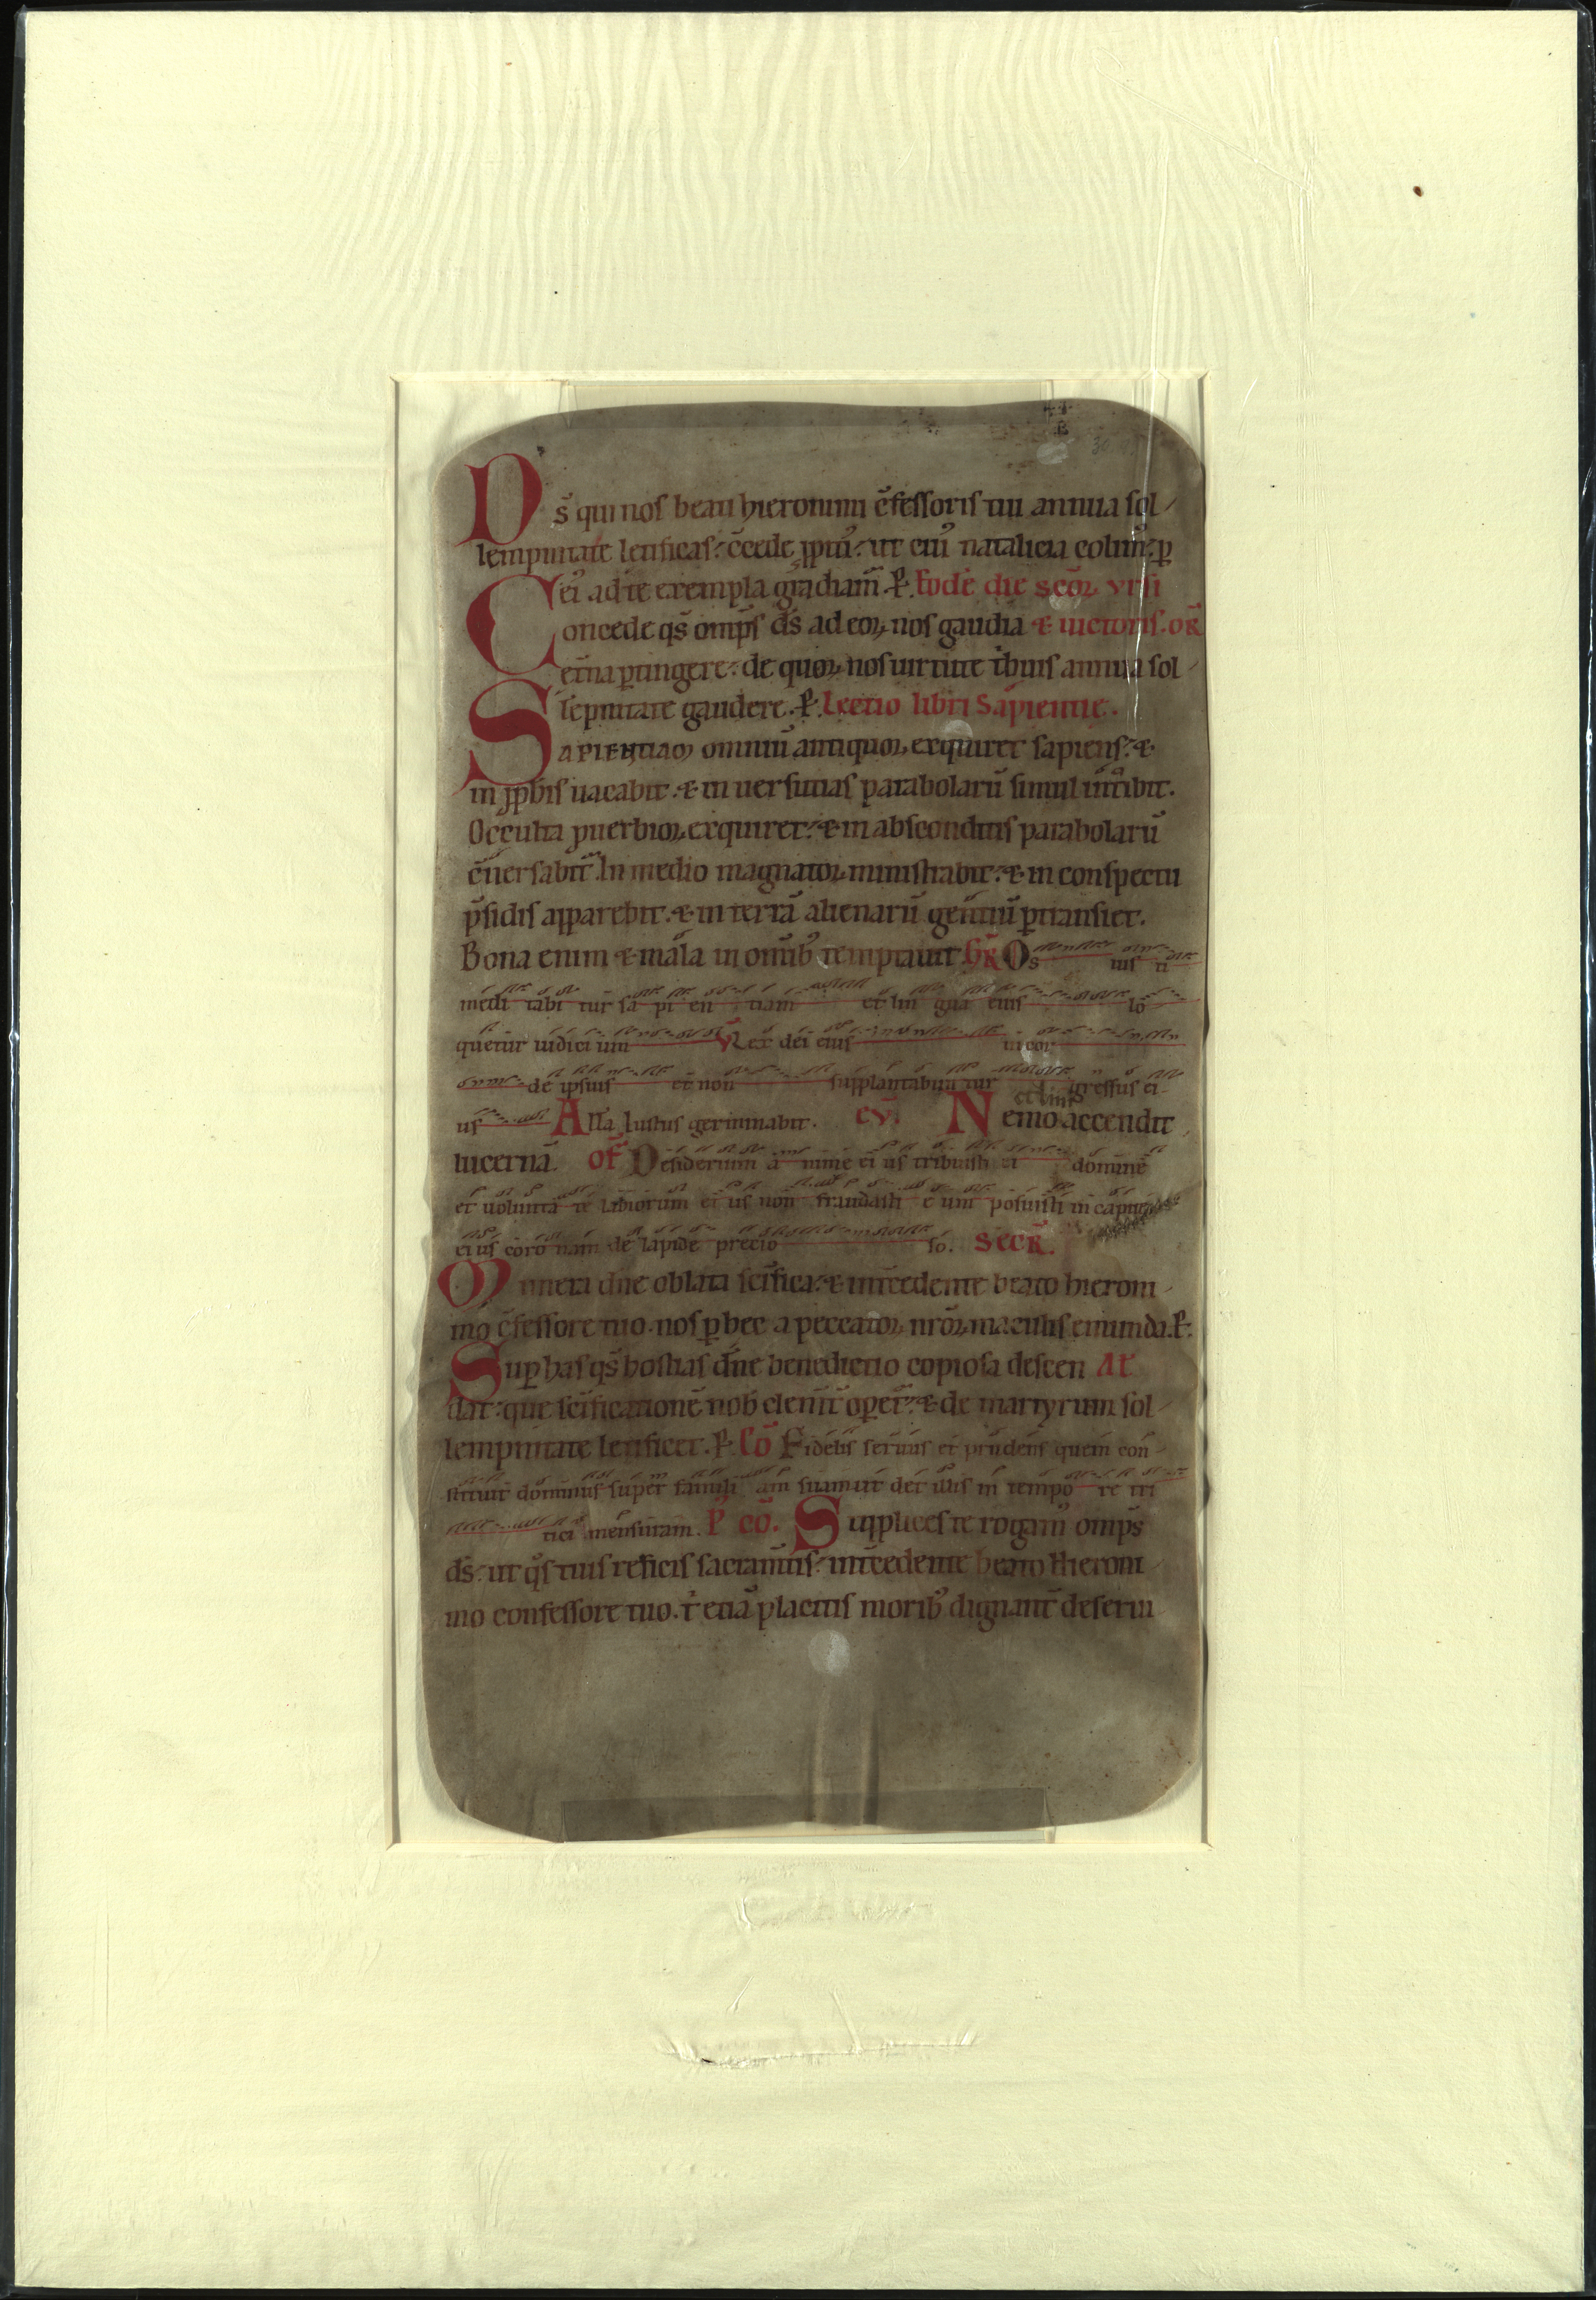 Ds̄ qui nos beati hieronimi c̄fessoris tui annua sol
lempnitate letificas. c̄cede ꝓpitiꝰ. ut eiꝰ natalicia colimꝰ. ꝑ
eiꝰ ad te exempla gradiam̄. ꝑ. Eodē die scōꝝ vrsi
Concede qs̄ omps̄ ds̄ ad eoꝝ nos gaudia & uictoris. oR̄
et̄na ꝑtingere. de quoꝝ nos uirtute t̓buis annua sol
lēpnitate gaudere. ꝑ. Lectio libri Sapientie.
SAPIENTIAM omniū antiquoꝝ exquiret sapiens. &
in ꝓph̄is uacabit. & in uersutias parabolarū simul int̓oibit.
Occulta ꝓuerbioꝝ exquiret. & in absconditis parabolarū
c̄uersabit̄. In medio magnatoꝝ ministrabit. & in conspectu
p̄sidis apparebit. & in terrā alienarū gentiū ꝑtransiet.
Bona enim & mala in omībꝰ temptauit. GR̄ Os ius ti
medi tabi tur sa pi en tiam et lin gua eius lo
quetur iudici um V̄ Lex dei eius in cor
de ipsius et non supplantabun tur gressus ei
us All̄a Iustus germinabit. eV̄. Nemo accendit
lucernā. oF̄ Desiderium a nime ei us tribuisti ei domine
et uolunta te labiorum ei us non fraudasti e um posuisti in capite
ei us coro nam de lapide precio so. SecR̄.
Munera dn̄e oblata scīfica. & int̄cedente beato hieroni
mo c̄fessore tuo. nos ꝑ hec a peccatoꝝ nrōꝝ maculis emunda. ꝑ.
Suꝑ has qs̄ hostias dn̄e benedictio copiosa descen At
dat. que scīficationē nob̄ clement̄ oꝑet̄. & de martyrum sol
lempnitate letificet. ꝑ. Cō Fidelis seruus et prudens quem con
stituit dominus super famili am suam ut det illis in tempo re tri
tici mensuram. P̄ cō. Supplices te rogamꝰ omps̄
ds̄. ut qs̄ tuis reficis sacram̄tis. int̄cedente beato Hieroni
mo confessore tuo. t̓ etiā placitis moribꝰ dignant̄ deserui